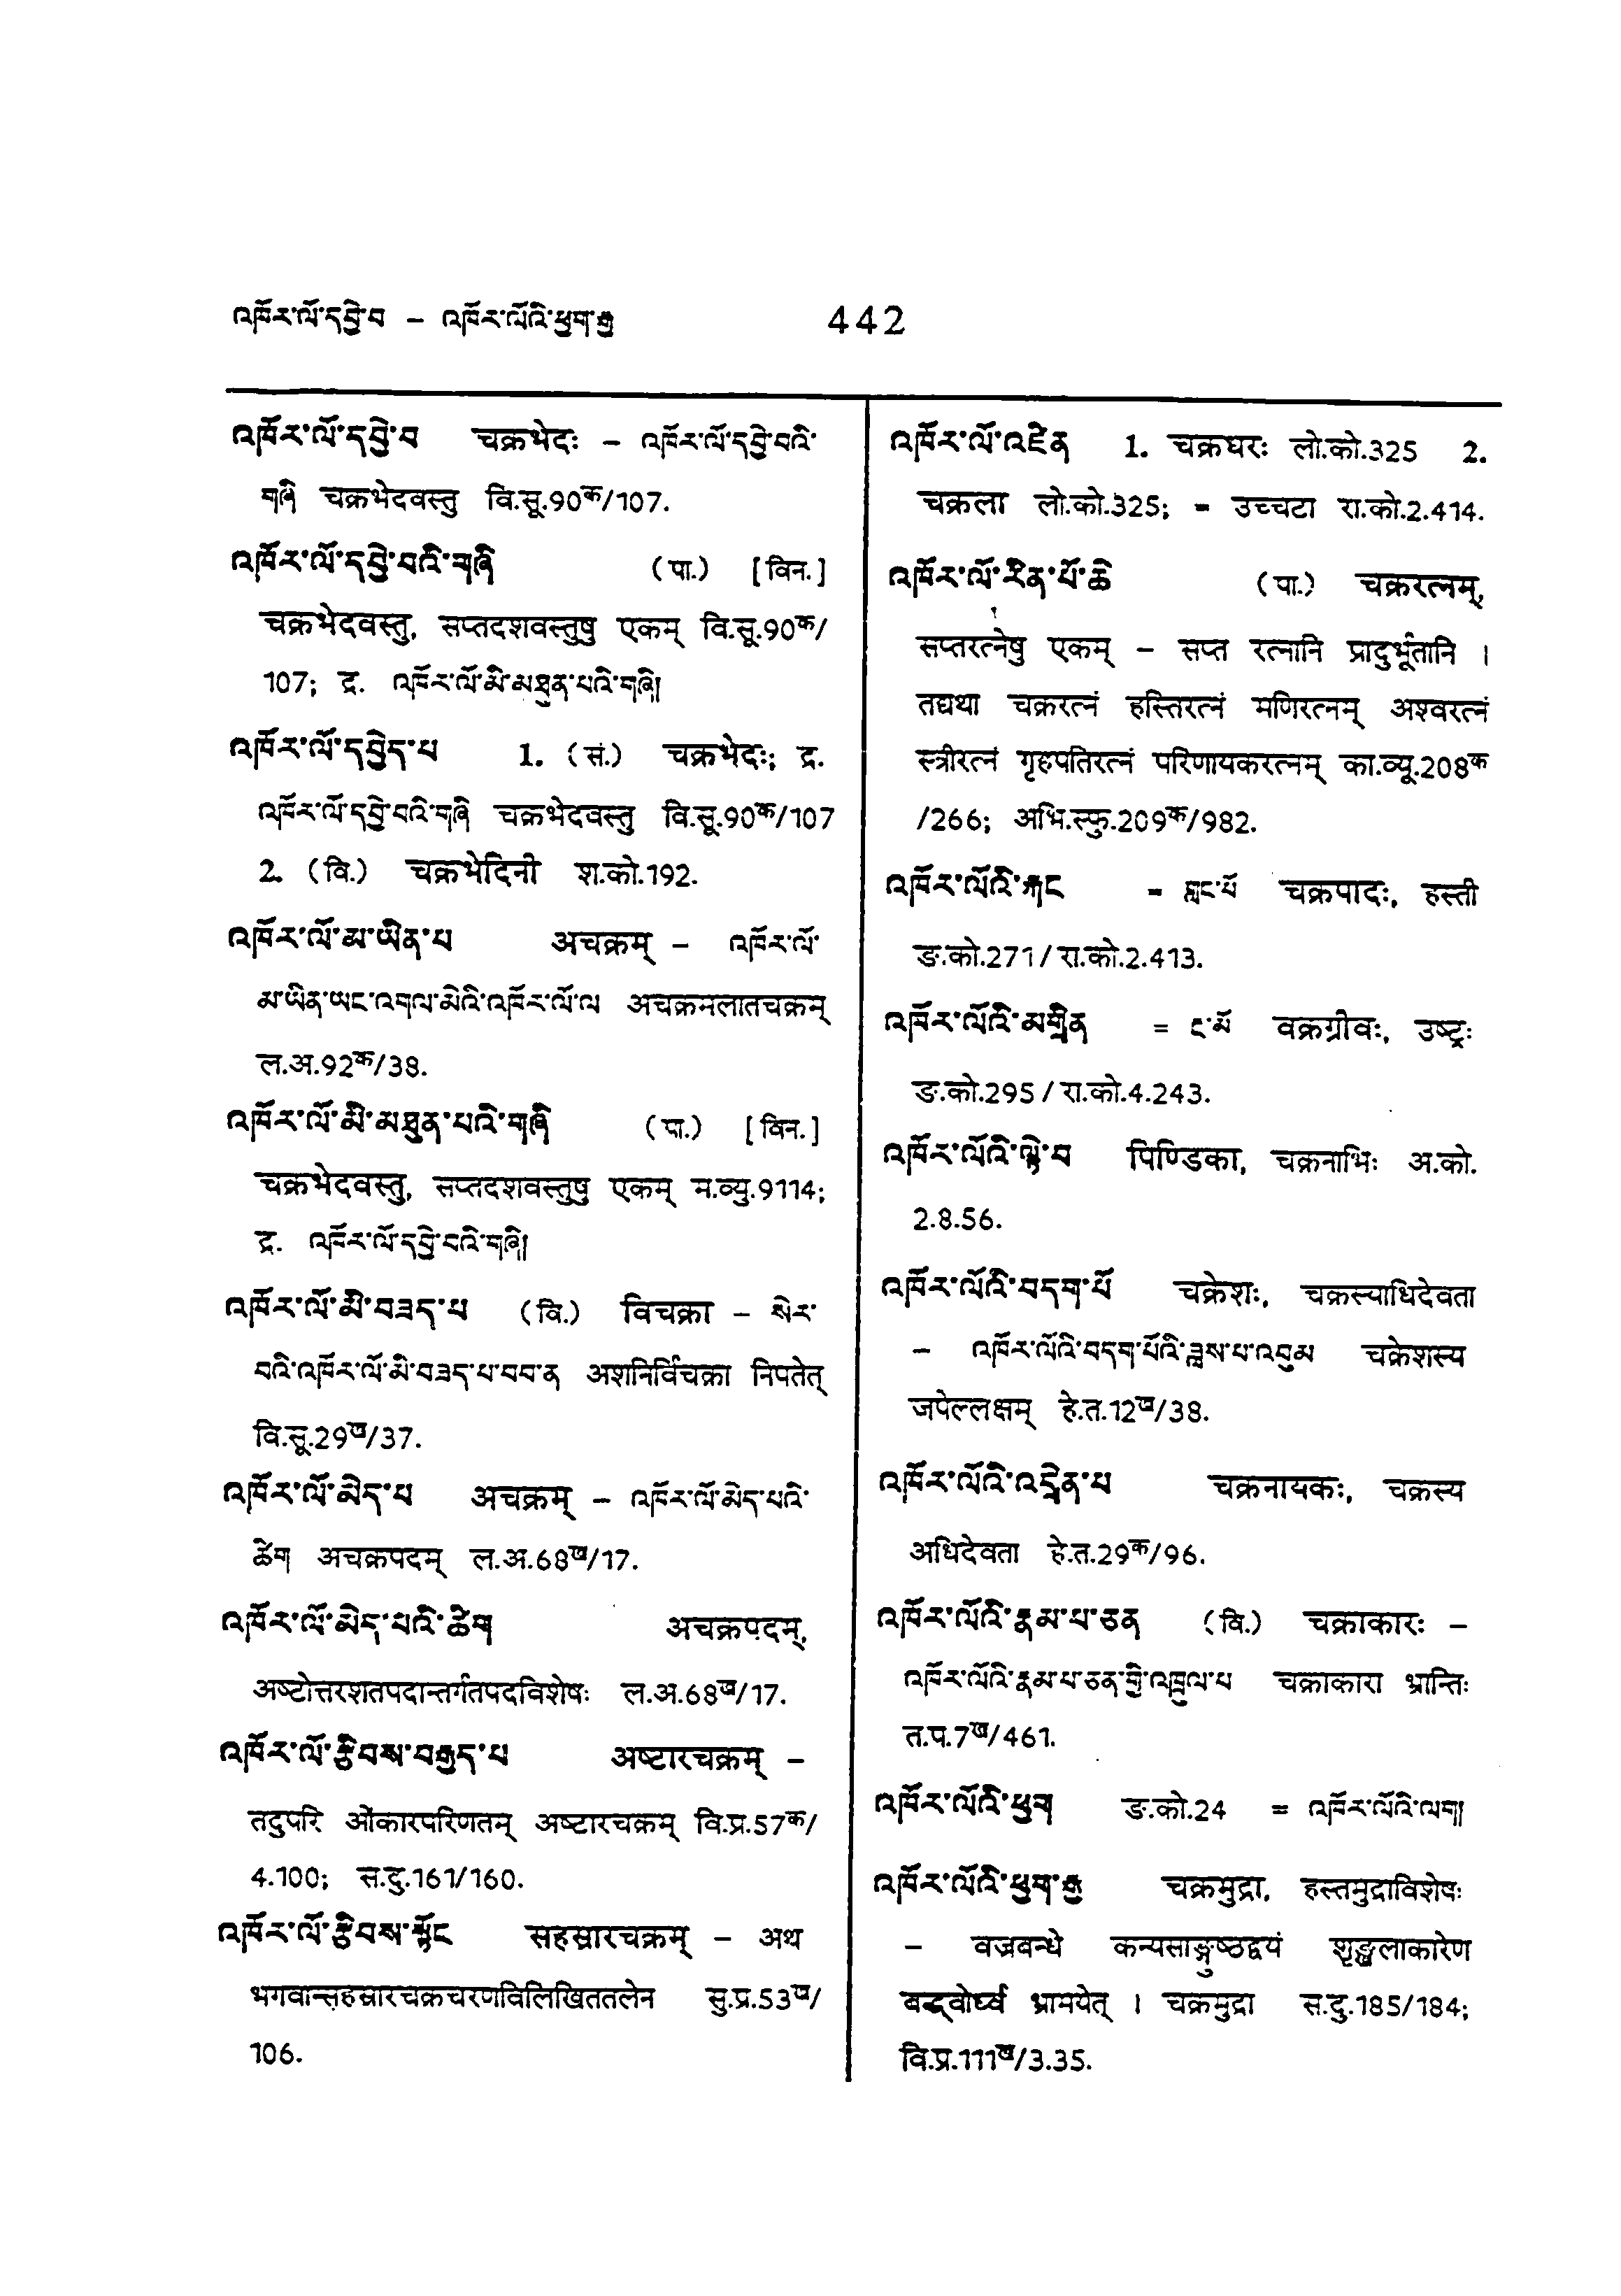 འཁོར་ལོ་དབྱེ་བ – འཁོར་ལོའི་ཕྱག་རྒྱ 442
འཁོར་ལོ་དབྱེ་བ चक्रभेदः – འཁོར་ལོ་དབྱེ་བའི་
གཞི चक्रभेदवस्तु वि.सू.90क/107.
འཁོར་ལོ་དབྱེ་བའི་གཞི (पा.) [विन.]
चक्रभेदवस्तु, सप्तदशवस्तुषु एकम् वि.सू.90क/
107; द्र. འཁོར་ལོ་མི་མཐུན་པའི་གཞི།
འཁོར་ལོ་དབྱེད་པ 1. (सं.) चक्रभेदः; द्र.
འཁོར་ལོ་དབྱེ་བའི་གཞི चक्रभेदवस्तु वि.सू.90क/107
2. (वि.) चक्रभेदिनी श.को.192.
འཁོར་ལོ་མ་ཡིན་པ अचक्रम् – འཁོར་ལོ་
མ་ཡིན་ཡང་འགལ་མེའི་འཁོར་ལོ་ལ अचक्रमलातचक्रम्
ल.अ.92क/38.
འཁོར་ལོ་མི་མཐུན་པའི་གཞི (पा.) [विन.]
चक्रभेदवस्तु, सप्तदशवस्तुषु एकम् म.व्यु.9114;
द्र. འཁོར་ལོ་དབྱེ་བའི་གཞི།
འཁོར་ལོ་མི་བཟད་པ (वि.) विचक्रा – སེར་
བའི་འཁོར་ལོ་མི་བཟད་པ་བབ་ན अशनिर्विचक्रा निपतेत्
वि.सू.29ख/37.
འཁོར་ལོ་མེད་པ अचक्रम् – འཁོར་ལོ་མེད་པའི་
ཚིག अचक्रपदम् ल.अ.68ख/17.
འཁོར་ལོ་མེད་པའི་ཚིག अचक्रपदम्,
अष्टोत्तरशतपदान्तर्गतपदविशेषः ल.अ.68ख/17.
འཁོར་ལོ་རྩིབས་བརྒྱད་པ अष्टारचक्रम् –
तदुपरि ओंकारपरिणतम् अष्टारचक्रम् वि.प्र.57क/
4.100; स.दु.161/160.
འཁོར་ལོ་རྩིབས་སྟོང सहस्रारचक्रम् – अथ
भगवान्सहस्रारचक्रचरणविलिखिततलेन सु.प्र.53ख/
106.
འཁོར་ལོ་འཛིན 1. चक्रधरः लो.को.325 2.
चक्रला लो.को.325; = उच्चटा रा.को.2.414.
འཁོར་ལོ་རིན་པོ་ཆེ (पा.) चक्ररत्नम्,
सप्तरत्नेषु एकम् – सप्त रत्नानि प्रादुर्भूतानि ।
तद्यथा चक्ररत्नं हस्तिरत्नं मणिरत्नम् अश्वरत्नं
स्त्रीरत्नं गृहपतिरत्नं परिणायकरत्नम् का.व्यू.208क
/266; अभि.स्फु.209क/982.
འཁོར་ལོའི་རྐང = གླང་པོ चक्रपादः, हस्ती
ङ.को.271/रा.को.2.413.
འཁོར་ལོའི་མགྲིན = ང་མོ वक्रग्रीवः, उष्ट्रः
ङ.को.295/रा.को.4.243.
འཁོར་ལོའི་ལྟེ་བ पिण्डिका, चक्रनाभिः अ.को.
2.8.56.
འཁོར་ལོའི་བདག་པོ चक्रेशः, चक्रस्याधिदेवता
– འཁོར་ལོའི་བདག་པོའི་ཟླས་པ་འབུམ चक्रेशस्य
जपेल्लक्षम् हे.त.12ख/38.
འཁོར་ལོའི་འདྲེན་པ चक्रनायकः, चक्रस्य
अधिदेवता हे.त.29क/96.
འཁོར་ལོའི་རྣམ་པ་ཅན (वि.) चक्राकारः –
འཁོར་ལོའི་རྣམ་པ་ཅན་གྱི་འཁྲུལ་པ चक्राकारा भ्रान्तिः
त.प.7ख/461.
འཁོར་ལོའི་ཕྱག ङ.को.24 = འཁོར་ལོའི་ལག།
འཁོར་ལོའི་ཕྱག་རྒྱ चक्रमुद्रा, हस्तमुद्राविशेषः
– वज्रबन्धे कन्यसाङ्गुष्ठद्वयं शृङ्खलाकारेण
बद्ध्वोर्ध्वं भ्रामयेत् । चक्रमुद्रा स.दु.185/184;
वि.प्र.111ख/3.35.